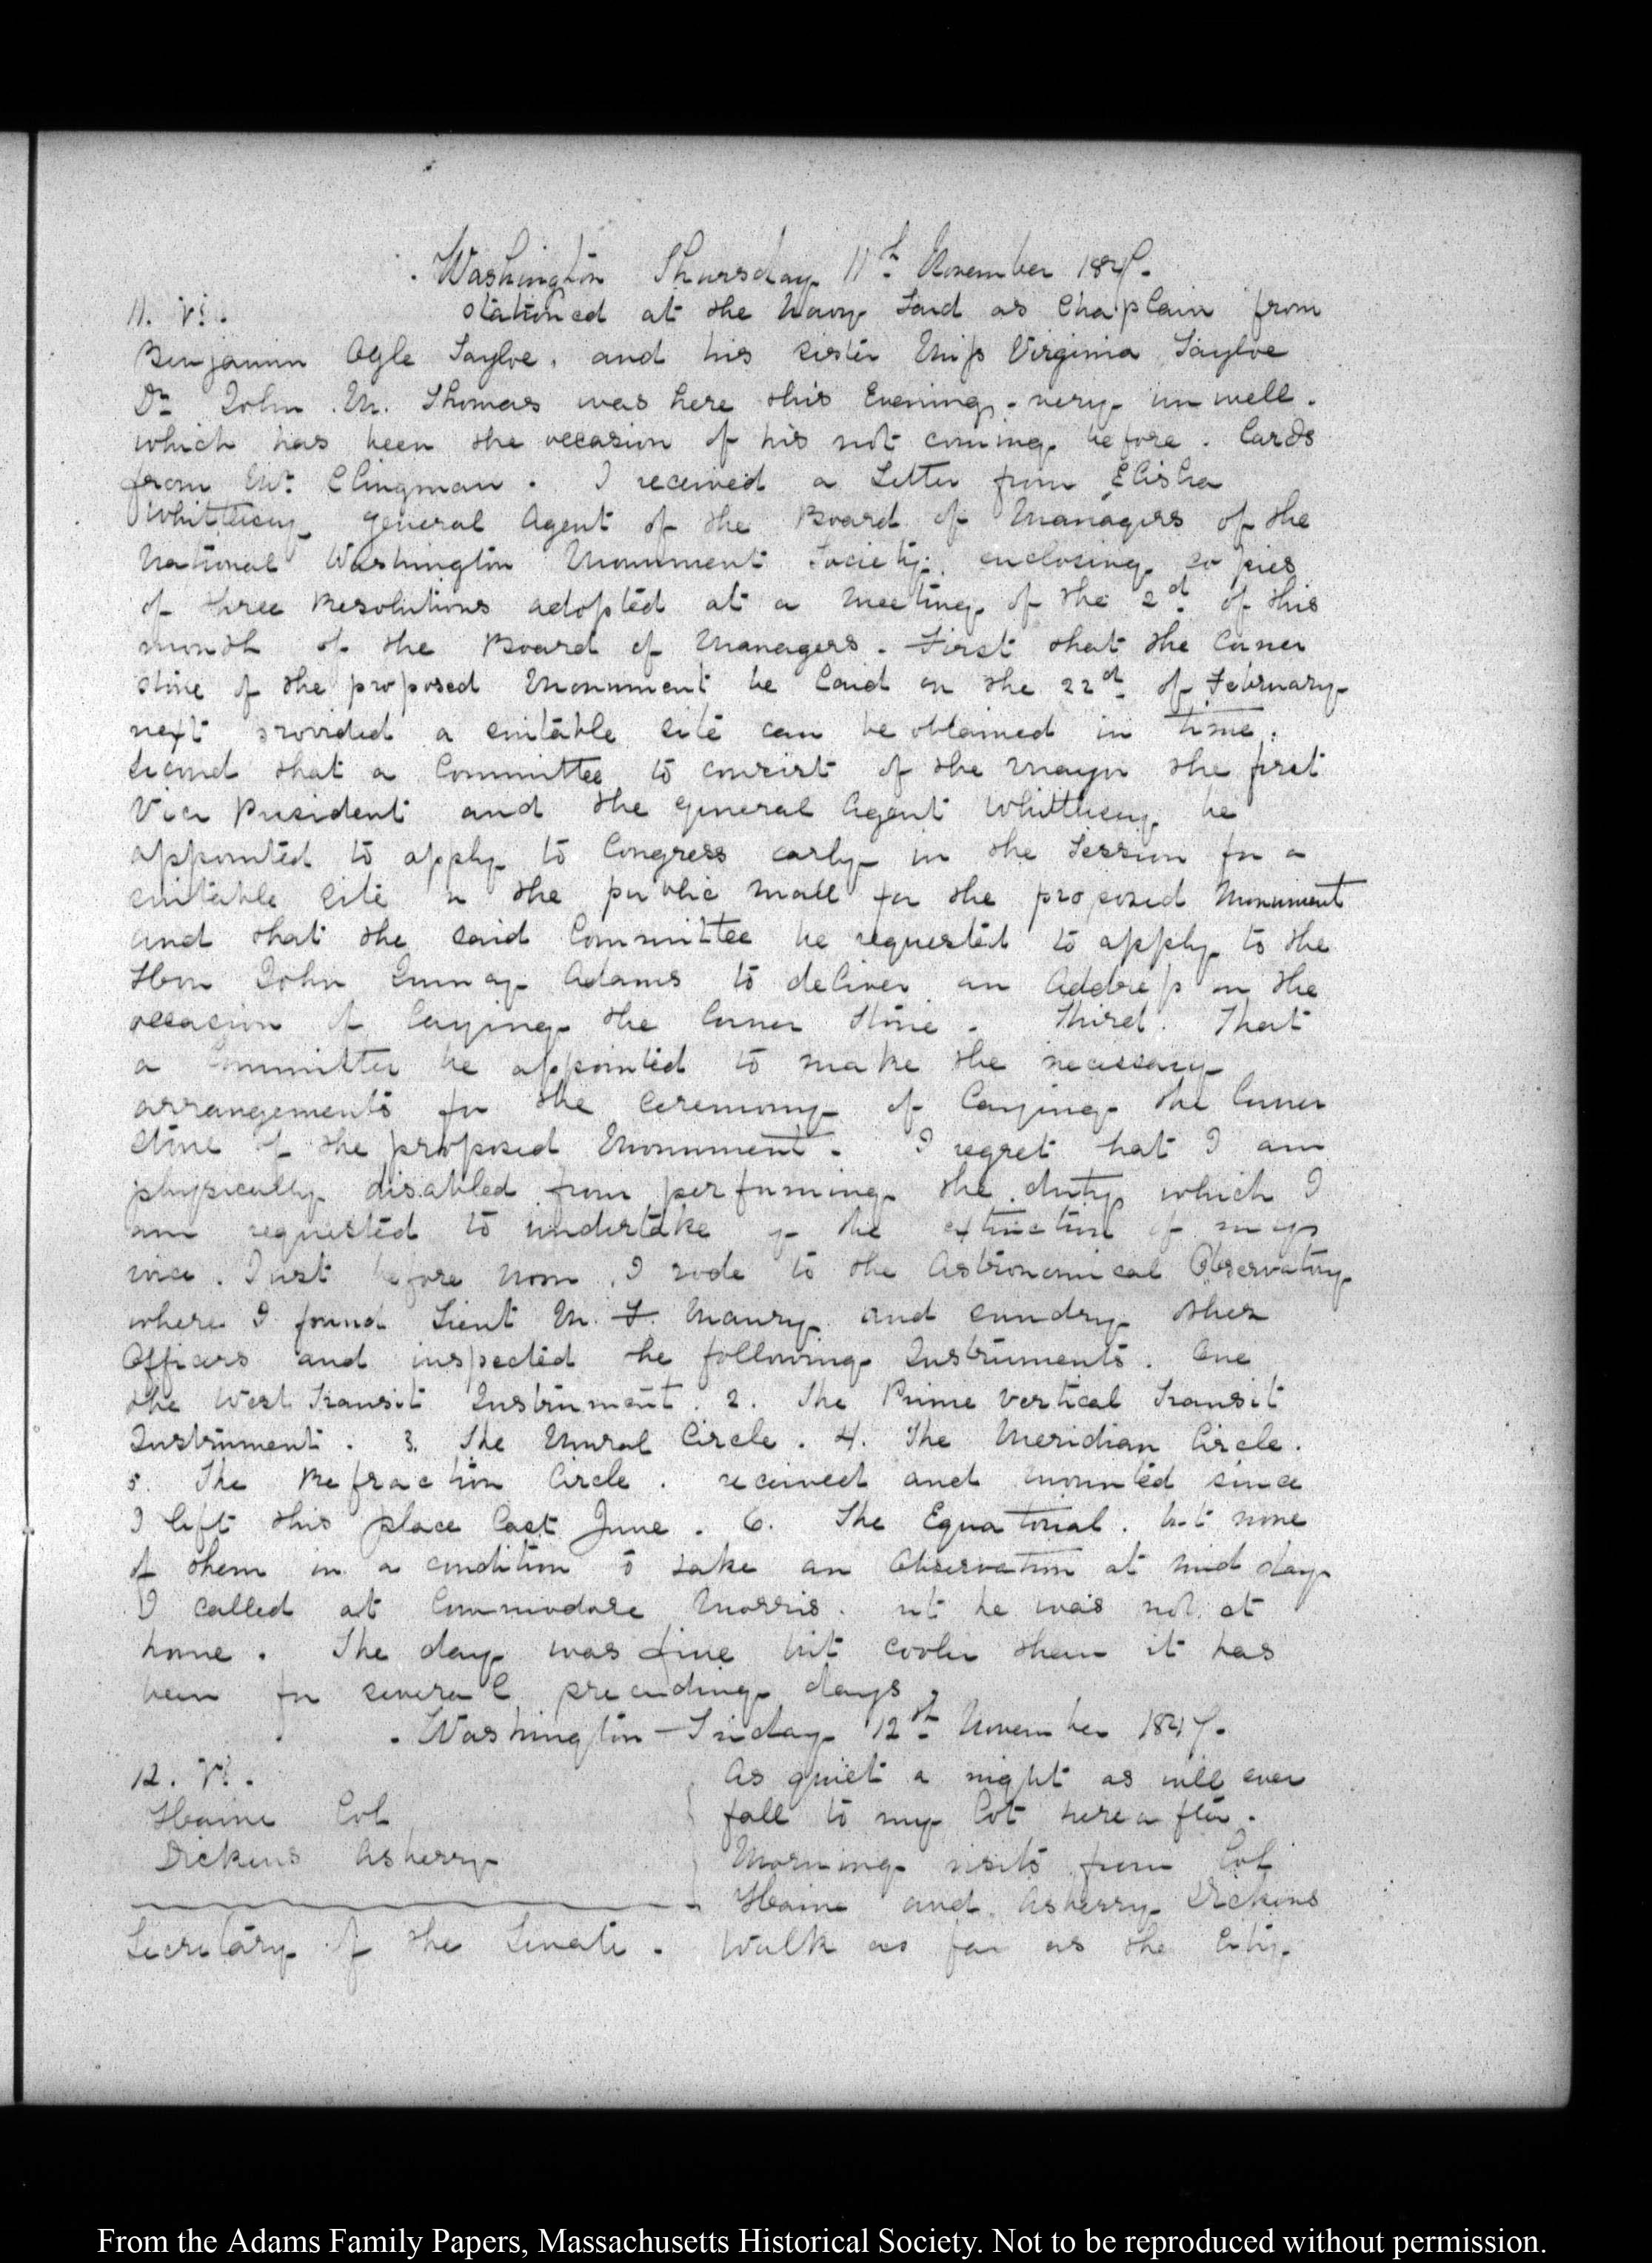 Washington Thursday 11th November 1847.
11. VI. stationed at the Navy Yard as Chaplain from
Benjamin Ogle Tayloe. and his sister Miss Virginia Tayloe
Dr John M. Thomas was here this Evening. very unwell.
which has been the occasion of his not coming before. Cards
from Mr Clingman. I received a Letter from Elisha
Whittlesey General Agent of the Board of Managers of the
National Washington Monument Society. enclosing copies
of three Resolutions adopted at a meeting of the 2d of this
month of the Board of Managers. First that the Corner
stone of the proposed Monument be laid on the 22d of February
next provided a suitable site can be obtained in time.
Second that a Committee to consist of the Mayor the first
Vice President and the General Agent Whittlesey be
appointed to apply to Congress early in the Session for a
suitable site on the public Mall for the proposed Monument
and that the said Committee be requested to apply to the
Hon John Quincy Adams to deliver an Address on the
occasion of laying the Corner Stone. Third. That
a Committee be appointed to make the necessary
arrangements for the Ceremony of laying the Corner
stone of the proposed Monument. I regret that I am
physically disabled from performing the duty which I
am requested to undertake by the extinction of my
voice. Just before Noon, I rode to the Astronomical Observatory
where I found Lieut M. F. Maury and sundry other
Officers and inspected the following Instruments. One
the West Transit Instrument. 2. The Prime Vertical Transit
Instrument. 3. The Mural Circle. 4. The Meridian Circle.
5. The Refraction Circle. received and mounted since
I left this place last June. 6. The Equatorial. but none
of them in a condition to take an Observation at mid day
I called at Commodore Morris. but he was not at
home. The day was fine but cooler than it has
been for several preceding days.
Washington Friday 12th November 1847.
12. VI. As quiet a night as will ever
Hoaine Col fall to my lot hereafter.
Dickins Asberry Morning visits from Col
Hoaine and Asberry Dickins
Secretary of the Senate. Walk as far as the City